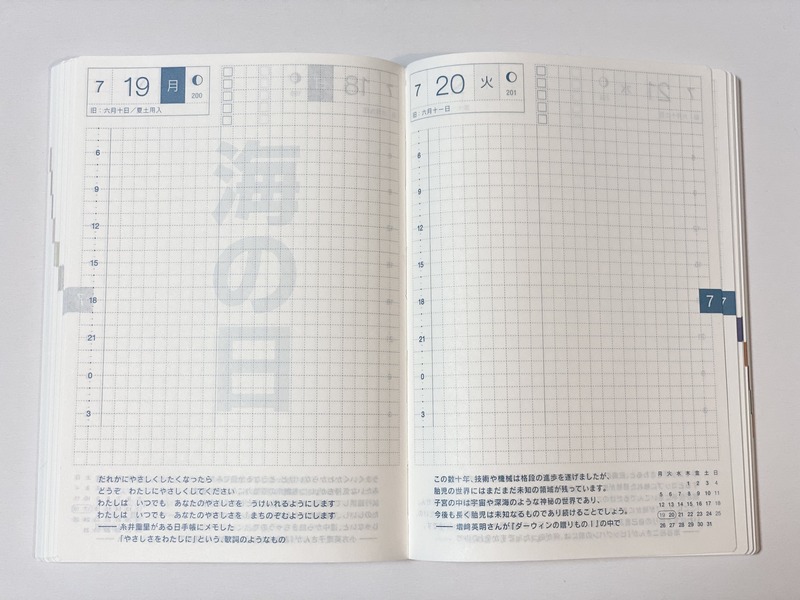 7 19 月
200
旧：六月十日／夏土用入
6
9
12
15
18
21
0
3
海の日
だれかにやさしくしたくなったら
どうぞ　わたしにやさしくしてください
わたしは　いつでも　あなたのやさしさを　うけいれるようにします
わたしは　いつでも　あなたのやさしさを　まちのぞむようにします
―― 糸井重里がある日手帳にメモした
「やさしさをわたしに」という、歌詞のようなもの
7 20 火
201
旧：六月十一日
6
9
12
15
18
21
0
3
7
7
この数十年、技術や機械は格段の進歩を遂げましたが、
胎児の世界にはまだまだ未知の領域が残っています。
子宮の中は宇宙や深海のような神秘の世界であり、
今後も長く胎児は未知なるものであり続けることでしょう。
―― 増﨑英明さんが『ダーウィンの贈りものⅠ』の中で
月 火 水 木 金 土 日
1 2 3 4
5 6 7 8 9 10 11
12 13 14 15 16 17 18
19 20 21 22 23 24 25
26 27 28 29 30 31